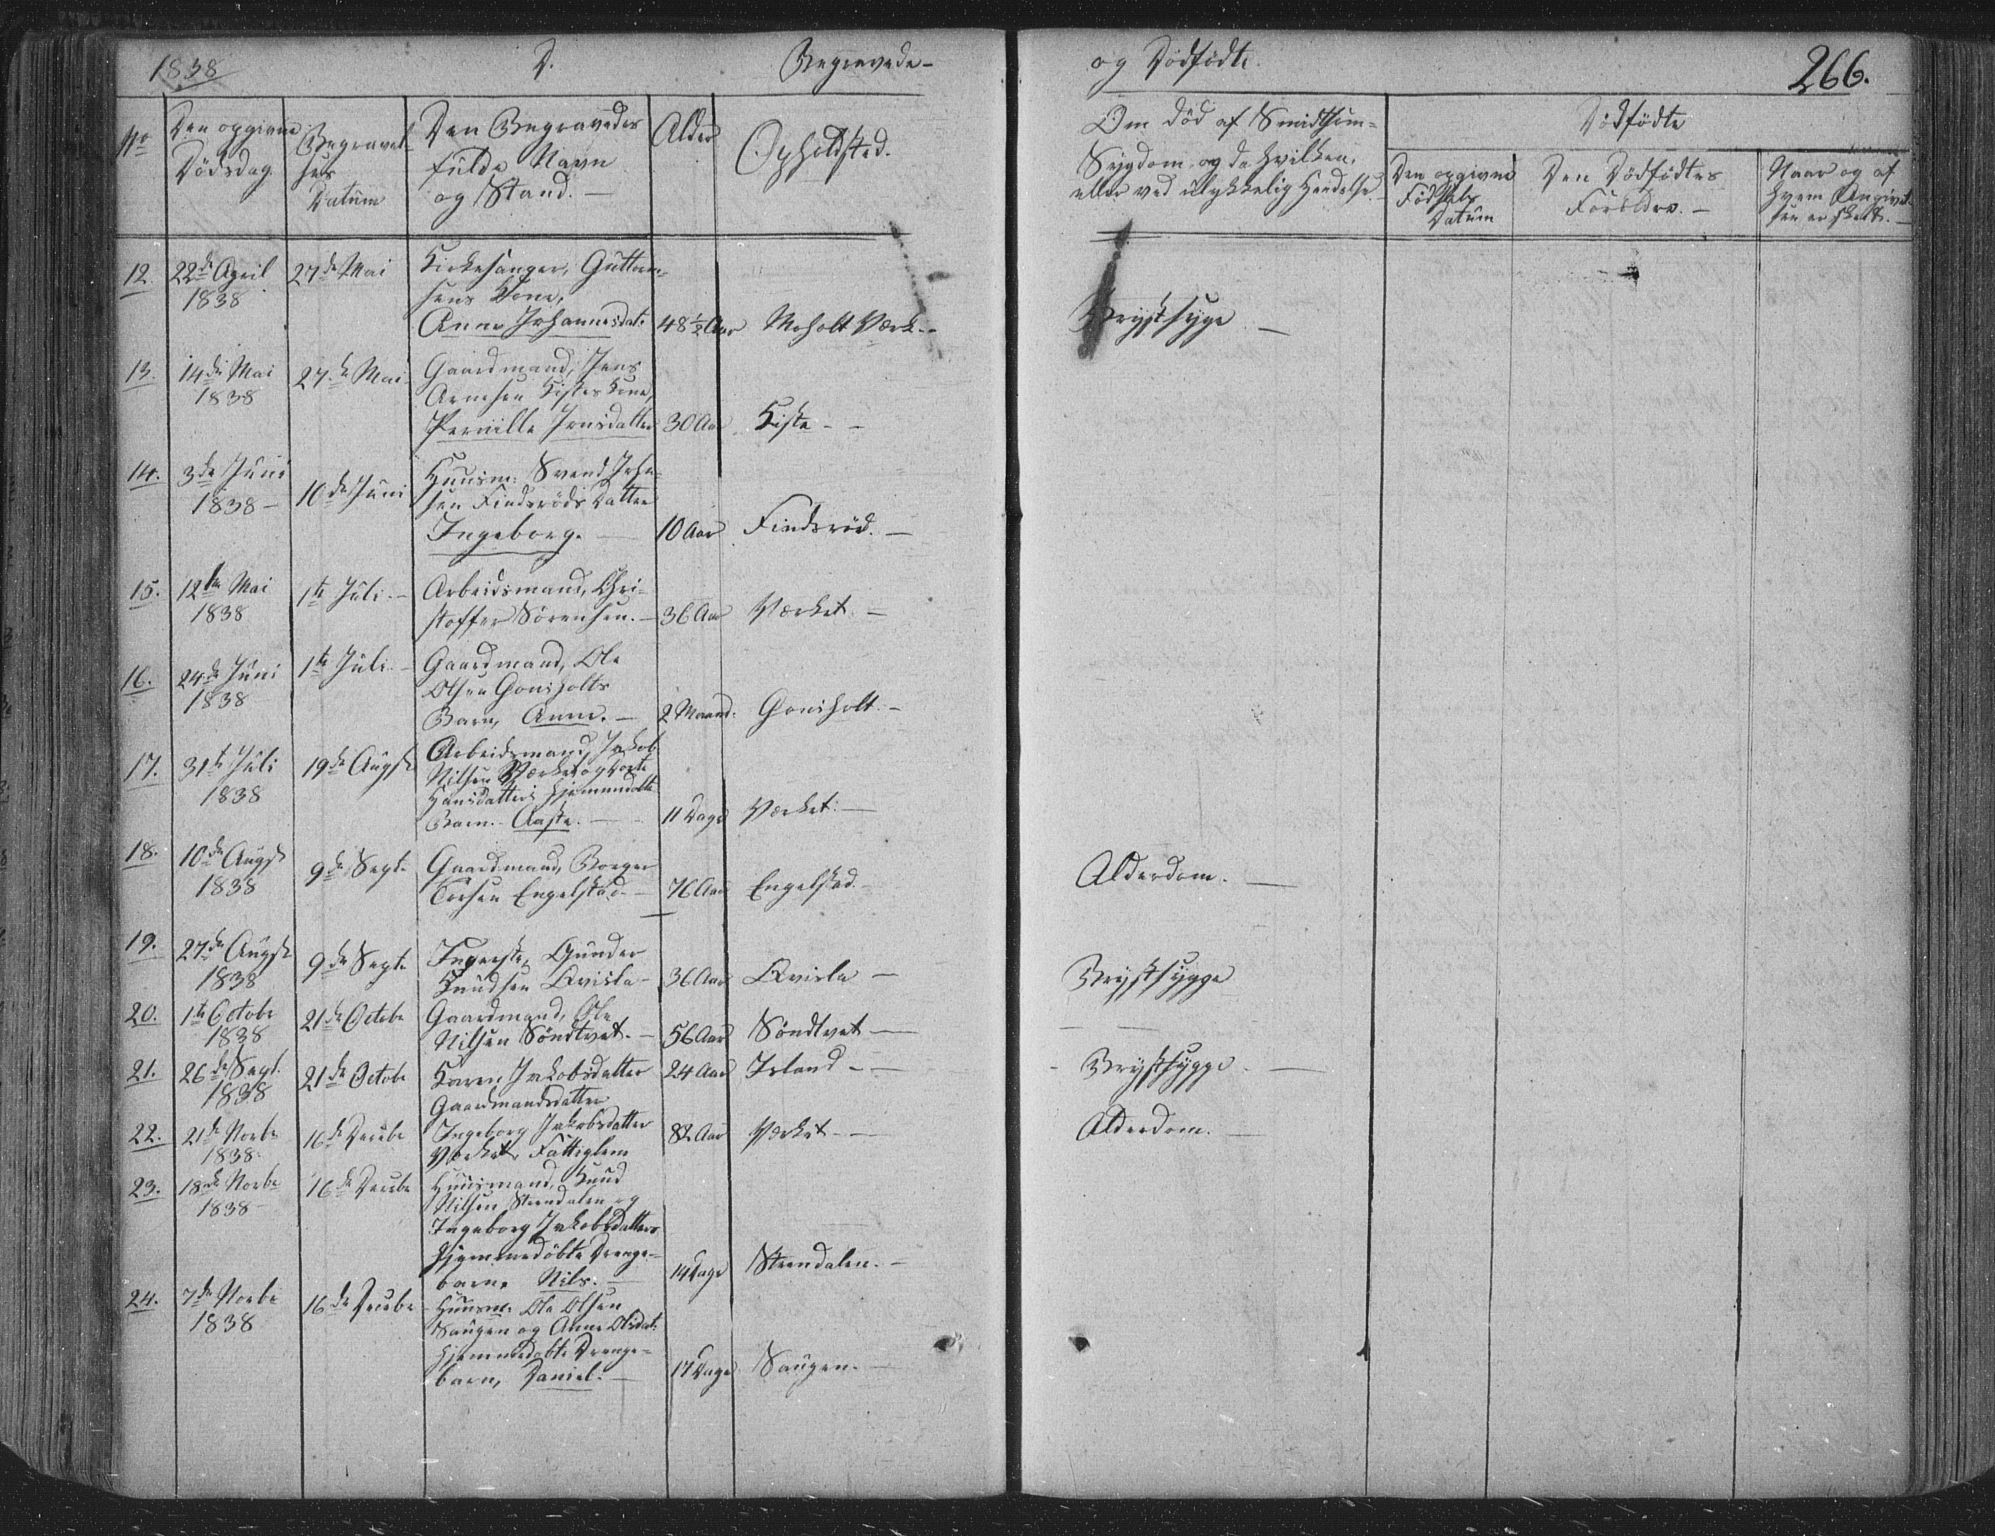 1838
D.
Begravede
og Dødfødte.
266.
No
Den opgivne
Dødsdag.
Begravel-
ses
Datum
Den Begravedes
fulde Navn
og Stand. —
Alder
Opholdsted.
Om død af Smidtsom-
Sygdom, og da hvilken,
eller ved ulykkelig Hendelse.
Dødfødte
Den opgivne
Fødsels
Datum
Den Dødfødtes
Forældre. —
Naar og af
hvem
sen er skedt. —
12. 22de April 1838
27de Mai
Kirkesanger,
sens Kone,
Anne Johannesdat:
48 1/2 Aar
Moholt Værk. -
Brystsyge. —
13. 14de Mai 1838
27de Mai
Gaardmand, Jens
Arnesen Kistes Kone,
Pernille Jensdatter
30 Aar
Kiste - -
14. 3de Juni 1838 -
10de Juni
Huusm: Svend Joh-
sen Findsrøds Datter
Ingeborg. —
10 Aar
Findsrød. —
15. 12te Mai 1838
1te Juli. -
Arbeidsmand, Chri-
stoffer Sørensen. —
36 Aar
Værket. —
16. 24de Juni 1838
1te Juli. -
Gaardmand, Ole
Olsen Gonsholts
Barn, Anne. —
2 Maand:
Gonsholt. -
17. 31te Juli 1838
19de Augst
Arbeidsmand, Jakob
Nilsen Værket og
Hansdatters hjemmedøbte
Barn. Aaste. —
11 Dage
Værket. —
18. 10de Augst 1838
9de Sept.
Gaardmand, Borger
Torsen Engelstad. -
76 Aar
Engelstad. -
Alderdom. —
19. 27de Augst 1838
9de Septe
Gunder
Knudsen Qvisla -
36 Aar
Qvisla —
Brystsygge
20. 1te Octobe 1838
21de Octobe
Gaardmand, Ole
Nilsen Søndtvet. —
56 Aar
Søndtvet —
21. 26de Sept. 1838
21de Octobe
Karen Jakobsdatter
Gaardmandsdatter
24 Aar
Island - -
Brystsygge. —
22. 21de Novbe 1838.
16de Decbe
Ingeborg Jakobsdatter
Værket, Fattiglem
82 Aar
Værket - -
Alderdom. —
23. 18de Novbe 1838 -
16de Decebe
Huusmand, Knud
Nilsen Steendalen og
Ingeborg Jakobsdatters
hjemmedøbte Drenge-
barn, Nils. —
14 Dage
Steendalen. -
24. 7de Novbe 1838
16de Decebe
Huusm: Ole Olsen
Saugen og Anne Olsdat:
hjemmedøbte Drenge-
barn, Daniel. —
17 Dage
Saugen. —